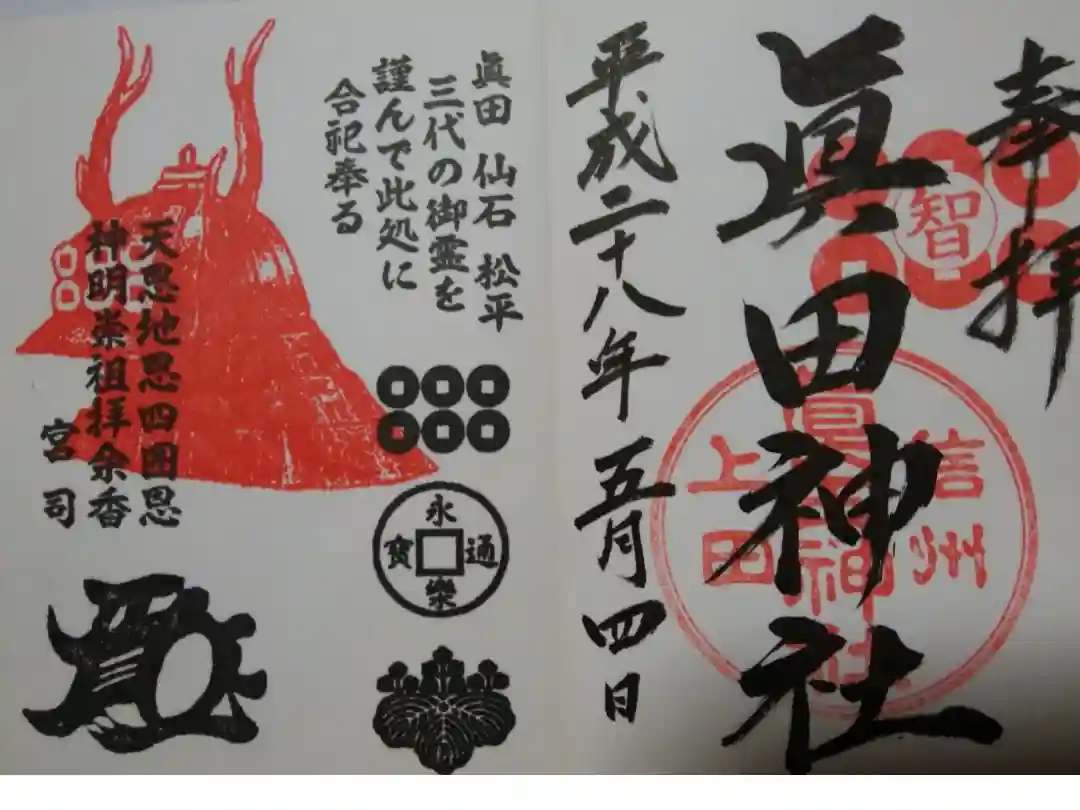 奉拝
眞田神社
智
信州
眞田神社
上田
平成二十八年五月四日
眞田 仙石 松平
三代の御霊を
謹んで此処に
合祀奉る
永樂通寳
天恩地恩四囲恩
神明崇祖拝余香
宮司